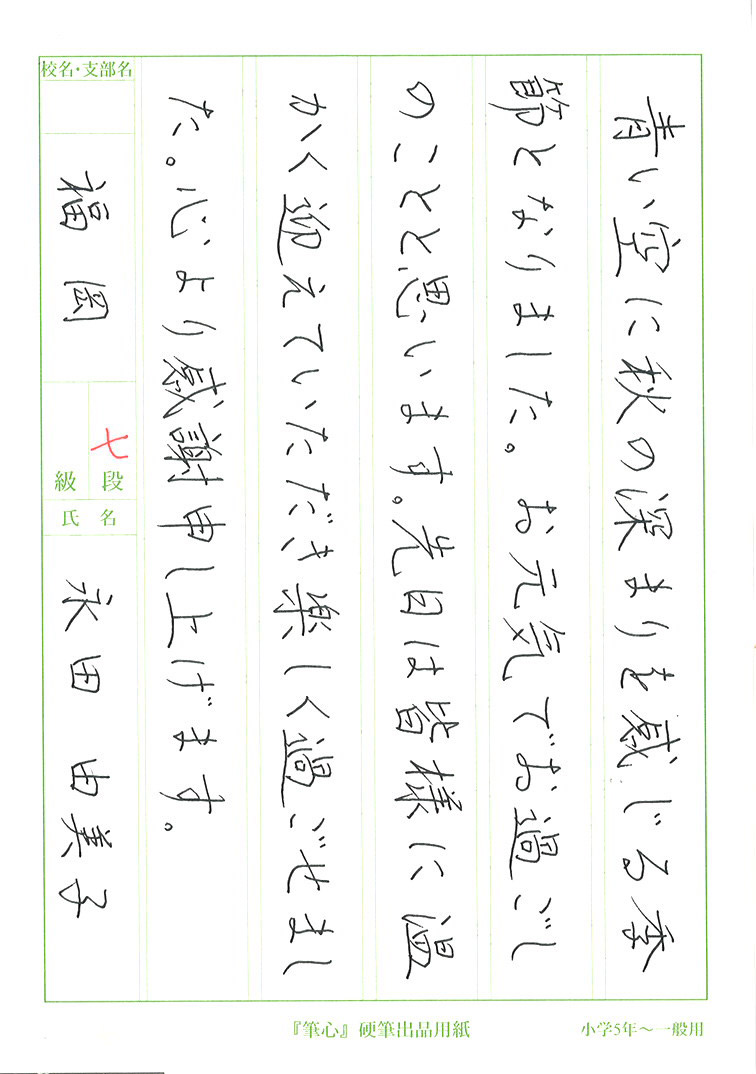 青い空に秋の深まりを感じる季
節となりました。お元気でお過ごし
のことと思います。先日は皆様に温
かく迎えていただき楽しく過ごせまし
た。心より感謝申し上げます。
校名・支部名
福岡
七
級 段
氏 名
永田 由美子
『筆心』硬筆出品用紙
小学5年〜一般用